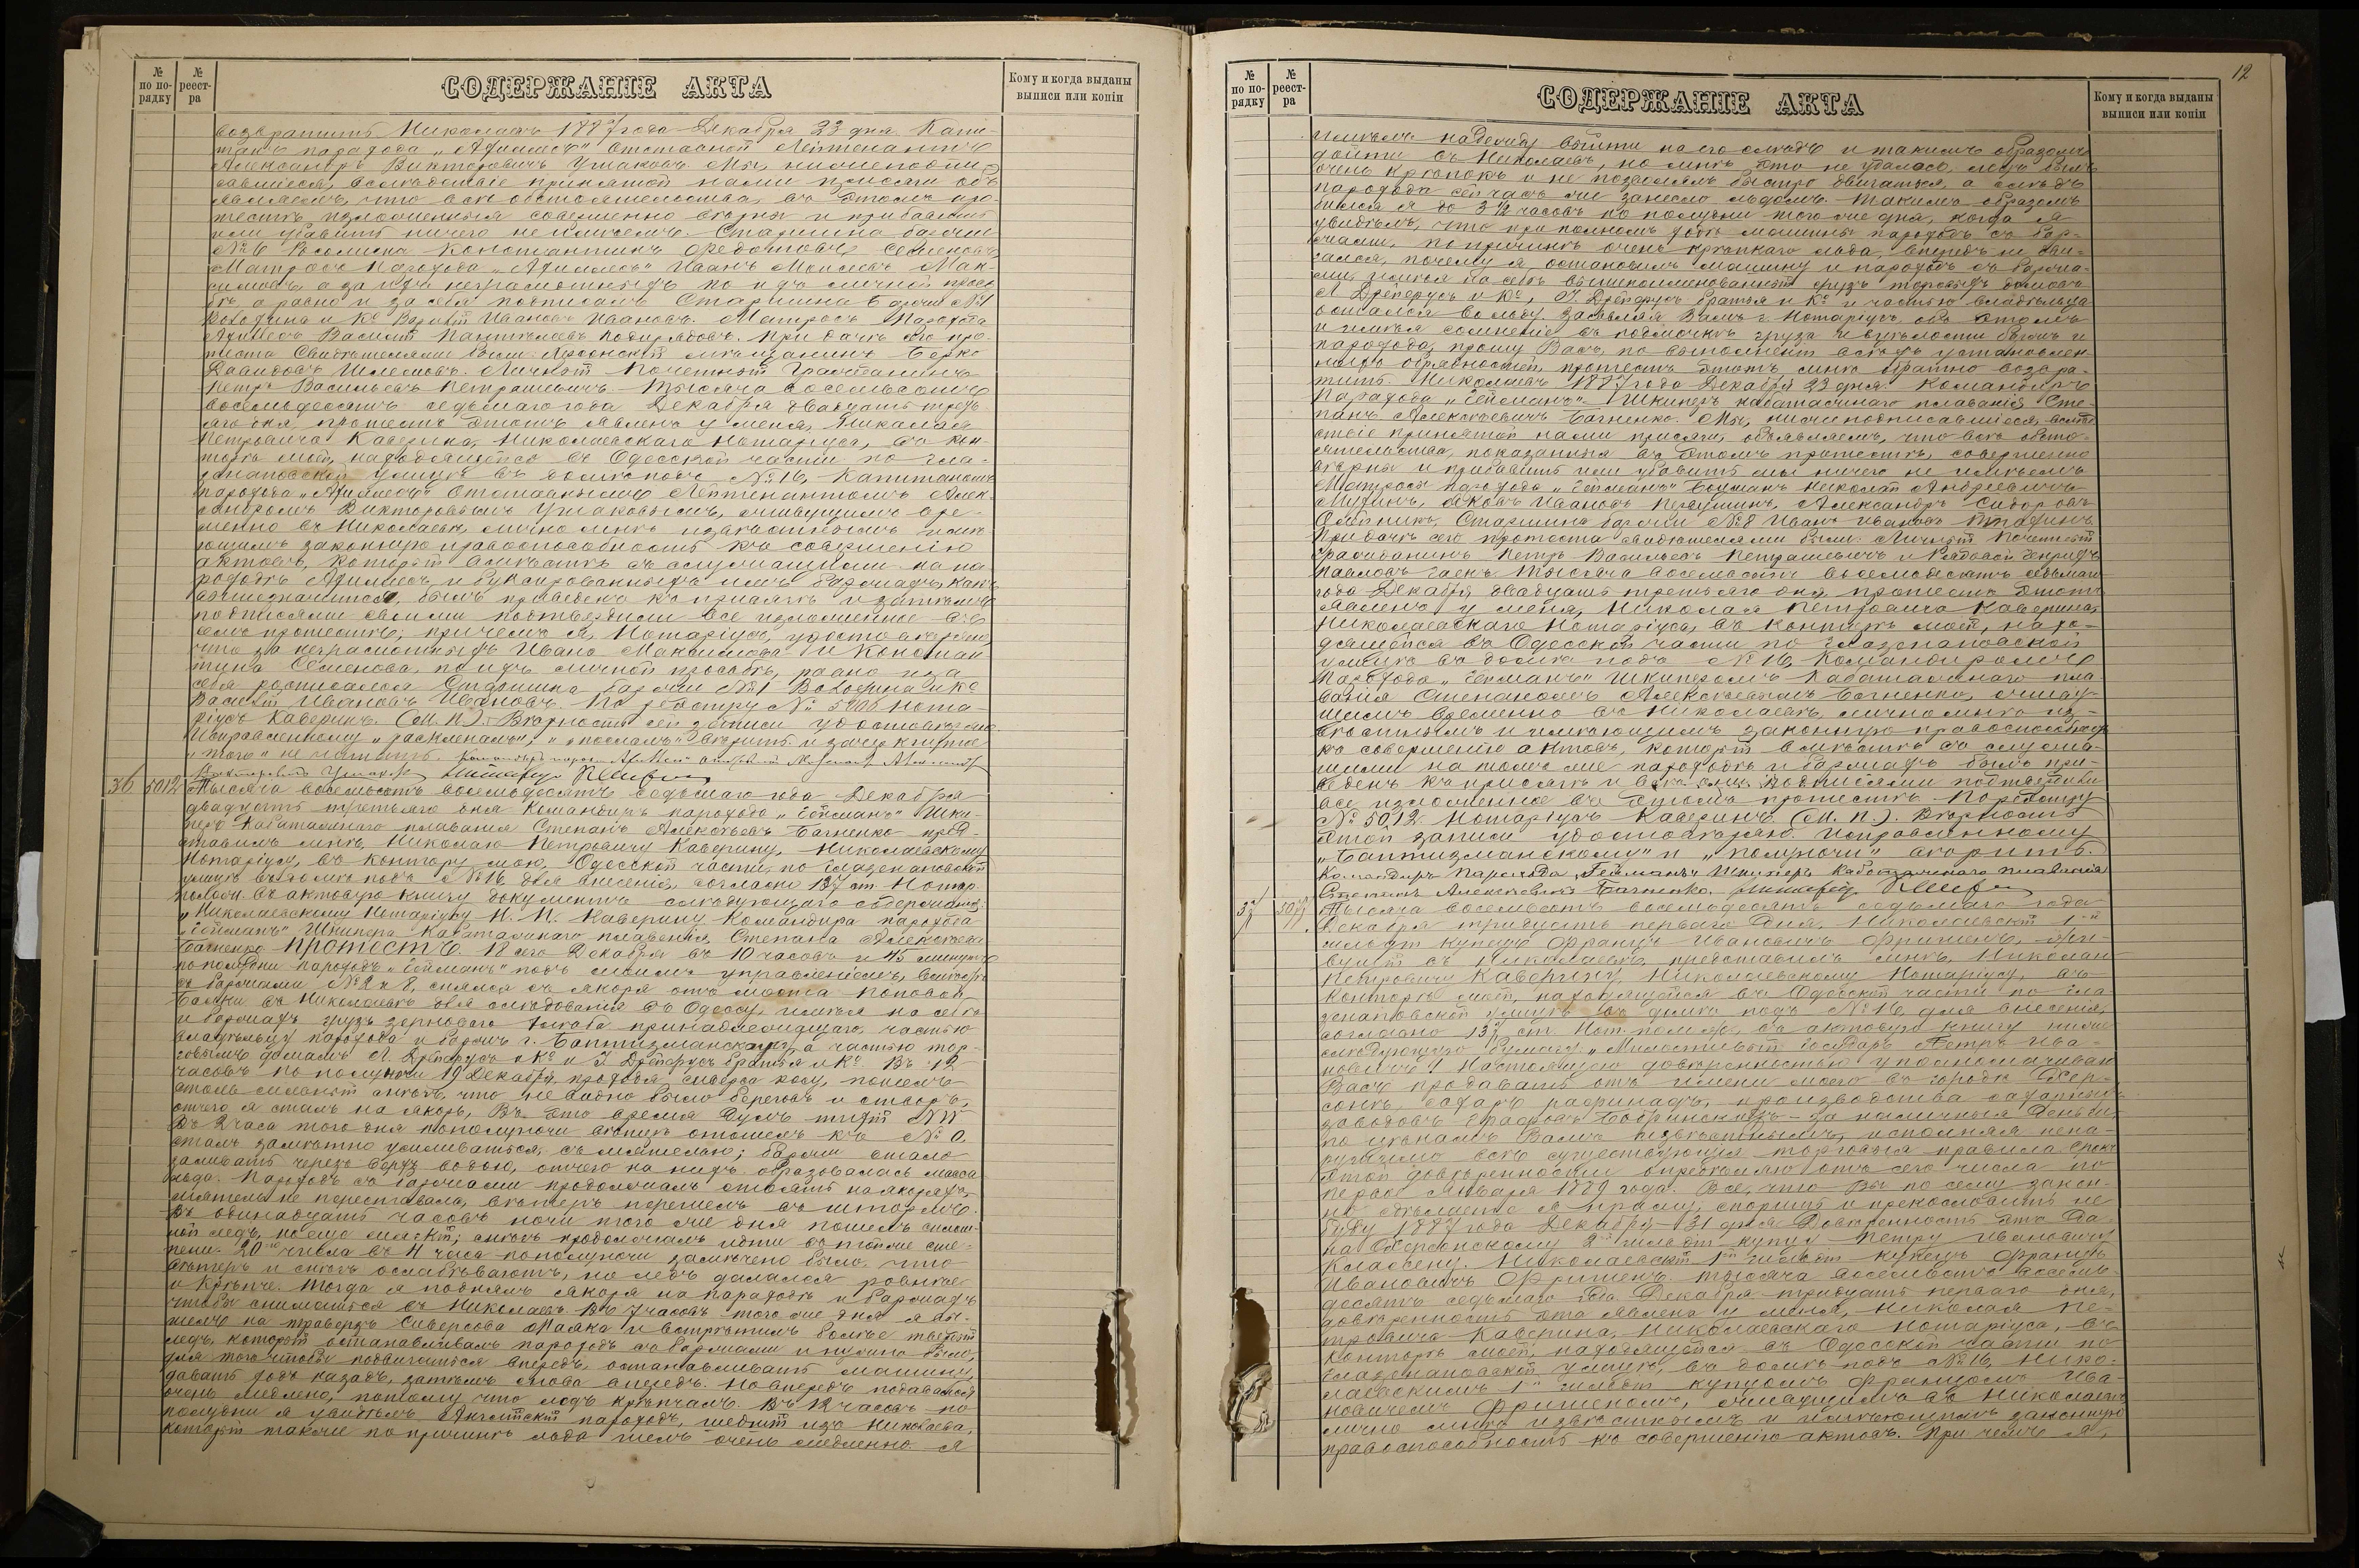 № по по-рядку
№ реест-ра
СОДЕРЖАНІЕ АКТА
Кому и когда выданы выписи или копіи
возвратить Николаевъ 1887 года Декабря 23 дня. Капи-
танъ парохода „Ахиллесъ" отставной Лейтенантъ
Александръ Викторовичъ Ушаковъ. Мы, нижеподпи-
савшіеся, вслѣдствіе принятой нами присяги объ
являемъ, что всѣ обстоятельства, въ этомъ про-
тестѣ изложенныя совершенно вѣрны и прибавить
или убавить ничего не имѣемъ. Старшина баржи
№ 6 Константинъ Федотовъ Семеновъ,
Матросъ Парохода „Ахиллесъ" Иванъ Моисеевъ Мак-
симовъ, а за ихъ неграмотныхъ по ихъ личной прось
бѣ, а равно и за себя подписалъ Старшина баржи № 1
Володина и Кº Василій Ивановъ Ивановъ. Матросъ Парохода
Ахиллесъ Василій Пантелѣевъ При дачѣ сего про-
теста Свидѣтелями были: Херсонскій мѣщанинъ Берко
Давидовъ Шлемовъ. Личный Почетный Гражданинъ
Петръ Васильевъ Петрашевичъ. Тысяча восемьсотъ
восемьдесятъ седьмаго года Декабря двадцать треть
яго дня, протестъ этотъ явленъ у меня, Николая
Петровича Каверина, Николаевскаго Нотаріуса, въ кон-
торѣ моей, находящейся въ Одесской части по Гла-
зенаповской улицѣ въ домѣ подъ № 16, Капитаномъ
парохода „Ахиллесъ" отставнымъ Лейтенантомъ Алек-
сандромъ Викторовымъ Ушаковымъ, живущимъ вре-
менно въ Николаевѣ, лично мнѣ извѣстнымъ и имѣ
ющимъ законную правоспособность къ совершенію
актовъ, который вмѣстѣ съ служащими на па
роходѣ Ахиллесъ и буксированныхъ имъ баржахъ, какъ
вышезначится, былъ приведенъ къ присягѣ и затѣмъ
подписями своими подтвердили все изложенное въ
семъ протестѣ, причемъ я, Нотаріусъ, удостовѣряю
что за неграмотныхъ Ивана Максимова и Констан
тина Семенова, по ихъ личной просьбѣ, равно и за
себя росписался Старшина баржи № 1 Володина и Кº
Василій Ивановъ Ивановъ. По реестру № 5006 Нота-
ріусъ Каверинъ. (М. П.). Вѣрность сей записи удостовѣряю.
Исправленному „раскленалъ", „послалъ" вѣрить. и зачеркнутое
„того" не читать.
36 5012 Тысяча восемьсотъ восемьдесятъ седьмаго года Декабря
двадцать третьяго дня Командиръ парохода „Гейманъ" Шки-
перъ Каботажнаго плаванія Степанъ Алексѣевъ Багненко пред-
ставилъ мнѣ, Николаю Петровичу Каверину, Николаевскому
Нотаріусу, въ контору мою, Одесской части, по Глазенаповской
улицѣ въ домѣ подъ № 16, для внесенія, согласно 137 ст. Нотар.
полож. въ актовую книгу документъ слѣдующаго содержанія:
„Николаевскому Нотаріусу Н. П. Каверину Командира парохода
„Гейманъ" Шкипера Каботажнаго плаванія Степана Алексѣева
Багненко Протестъ. 18 сего Декабря въ 10 часовъ и 45 минутъ
по полудни пароходъ „Гейманъ" подъ моимъ управленіемъ, вмѣстѣ
съ баржами № 2 и 8, снялся съ якоря отъ моста Поповой
Балки въ Николаевѣ для слѣдованія въ Одессу, имѣя на себѣ
и баржахъ грузъ зерноваго хлѣба принадлежащаго частью
владѣльцу парохода и баржъ г. Баптизманскому, а частью тор-
говымъ домамъ Л. Дрейфусъ и Кº и I Дрейфусъ братья и Кº. Въ 12
часовъ по полуночи 19 Декабря, проходя Сиверса косу, пошелъ
столь сильный снѣгъ, что не видно было береговъ и створъ,
отчего я сталъ на якорь, Въ это время дулъ тихій NW
Въ 2 часа того дня пополуночи вѣтеръ отошелъ къ № 0.
сталъ замѣтно усиливаться, съ мятелью; баржи стало
заливать черезъ верхъ водою, отчего на нихъ образовалась масса
льда. Пароходъ съ баржами продолжалъ стоять на якоряхъ,
мятель не переставала, вѣтеръ перешелъ въ штормъ.
Въ одинадцать часовъ ночи того же дня пошелъ сплош-
ной ледъ, но еще мягкій; снѣгъ продолжалъ идти въ той же сте-
пени. 20го числа въ 4 часа пополуночи замѣчено было, что
вѣтеръ и снѣгъ ослабѣваютъ, но ледъ дѣлался ровнѣе
и крѣпче. Тогда я поднялъ якоря на пароходѣ и баржахъ
чтобы слѣдовать въ Николаевъ. Въ 7 часовъ того же дня я вы-
шелъ на траверзъ Сиверсова Маяка и встрѣтилъ болѣе твердый
ледъ, который останавливалъ пароходъ съ баржами и нужно было,
для того чтобы подвигаться впередъ, останавливать машину,
давать ходъ назадъ, затѣмъ снова впередъ. Но впередъ подавался
очень медлено, потому что ледъ крѣпчалъ. Въ 12 часовъ по
полудни я увидѣлъ Англійскій пароходъ, шедшій изъ Николаева,
который также по причинѣ льда шелъ очень медленно. Я
12
№ по по-рядку
№ реест-ра
СОДЕРЖАНІЕ АКТА
Кому и когда выданы выписи или копіи
имѣлъ надежду выйти на его слѣдъ и такимъ образомъ
дойти въ Николаевъ, но мнѣ это не удалось, ледъ былъ
очень крѣпокъ и не позволялъ быстро двигаться, а слѣдъ
парохода сейчасъ же занесло льдомъ. Такимъ образомъ
бился я до 3½ часовъ по полудни того же дня, когда я
увидѣлъ, что при полномъ ходѣ машины пароходъ съ бар-
жами, по причинѣ очень крѣпкаго льда, впередъ не дви-
гался, почему я остановилъ машину и пароходъ съ баржа-
ми, имѣя на себѣ вышепоименованный грузъ торговыхъ домовъ
Л Дрейфусъ и Кº, I. Дрейфусъ братья и Кº и частью владѣльца
остался во льду. Заявляя Вамъ г. Нотаріусъ, объ этомъ
и имѣя сомнѣніе въ подмочкѣ груза и цѣлости баржъ и
парохода, прошу Васъ, по выполненіи всѣхъ установлен-
ныхъ обрядностей, протестъ этотъ мнѣ обратно возвра-
тить. Николаевъ 1887 года Декабря 23 дня. Командиръ
Парохода „Гейманъ" Шкиперъ каботажнаго плаванія Сте-
панъ Алексѣевичъ Багненко. Мы, нижеподписавшіеся, вслѣд
ствіе принятой нами присяги, объявляемъ, что всѣ обсто-
ятельства, показанныя въ этомъ протестѣ, совершенно
вѣрны и прибавить или убавить мы ничего не имѣемъ
Матросы парохода „Гейманъ" Боцманъ Николай Андреевичъ
Мухинъ, Яковъ Ивановъ Александръ Сидоровъ
Старшина баржи № 8 Иванъ Ивановъ
При дачѣ сего протеста свидѣтелями были: Личный Почетный
Гражданинъ Петръ Васильевъ Петрашевичъ и Рядовой Генрихъ
Павловъ Гаекъ. Тысяча восемьсотъ восемьдесятъ седьмаго
года Декабря двадцать третьяго дня протестъ этотъ
явленъ у меня, Николая Петровича Каверина,
Николаевскаго Нотаріуса, въ конторѣ моей, нахо-
дящейся въ Одесской части по Глазенаповской
улицѣ въ домѣ подъ № 16, Командиромъ
парохода „Гейманъ" Шкиперомъ Каботажнаго пла-
ванія Степаномъ Алексѣевымъ Багненко, живу-
щимъ временно въ Николаевѣ, лично мнѣ из-
вѣстнымъ и имѣющимъ законную правоспособность
къ совершенію актовъ, который вмѣстѣ съ служа-
щими на томъ же пароходѣ и баржахъ былъ при-
веденъ къ присягѣ и подписями подтвердили
все изложенное въ этомъ протестѣ. По реестру
№ 5012. Нотаріусъ Каверинъ. (М. П.). Вѣрность
этой записи удостовѣряю. Исправленному
„Баптизманскому" и „полуночи" вѣрить.
Командиръ Парохода „Гейманъ" Шкиперъ Каботажнаго плаванія
Степанъ Алексѣевичъ Багненко.
37 Тысяча восемьсотъ восемьдесятъ седьмаго года
Декабря тридцать перваго дня, Николаевскій 1й
гильдіи купецъ Францъ Ивановичъ Фришенъ, жи-
вущій въ Николаевѣ, представилъ мнѣ, Николаю
Петровичу Каверину, Николаевскому Нотаріусу, въ
конторѣ моей, находящейся въ Одесской части по Гла-
зенаповской улицѣ въ домѣ подъ № 16, для внесенія,
согласно 137 ст. Нот. полож., въ актовую книгу ниже
слѣдующую бумагу: „Милостивый Государь Петръ Ива-
новичъ! Настоящею довѣренностью уполномачиваю
Васъ продавать отъ имени моего въ городѣ Хер-
сонѣ, сахаръ рафинадъ, производства сахарныхъ
заводовъ Графовъ Бобринскихъ – за наличныя деньги,
по цѣнамъ Вамъ извѣстнымъ, исполняя нена-
рушимо всѣ существующія торговыя правила. Срокъ
этой довѣренности опредѣляю отъ сего числа по
первое Января 1889 года. Все, что Вы по сему закон-
но сдѣлаете я приму, спорить и прекословить не
буду 1887 года Декабря 31 дня. Довѣренность эта Да-
на Херсонскому 2й гильдіи купцу Петру Ивановичу
Классену. Николаевскій 1й гильдіи купецъ Францъ
Ивановичъ Фришенъ. Тысяча восемьсотъ восемь-
десятъ седьмаго года Декабря тридцать перваго дня,
довѣренность эта явлена у меня, Николая Пе-
тровича Каверина, Николаевскаго Нотаріуса, въ
конторѣ моей, находящейся въ Одесской части по
Глазенаповской улицѣ, въ домѣ подъ № 16, Нико-
лаевскимъ 1й гильдіи купцомъ Францомъ Ива-
новичемъ Фришеномъ, живущимъ въ Николаевѣ,
лично мнѣ извѣстнымъ и имѣющимъ законную
правоспособность къ совершенію актовъ. При чемъ я,